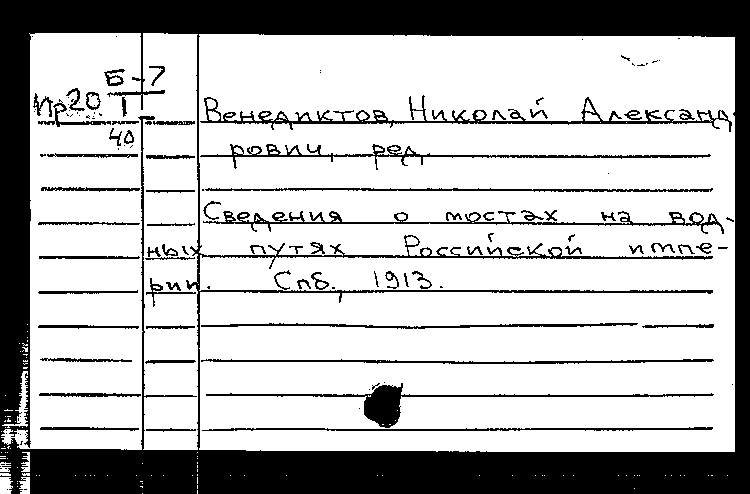 Б-7
Пр20 1
40
Венедиктов, Николай Александ-
рович, ред.
Сведения о мостах на вод-
ных путях Российской импе-
рии. Спб., 1913.